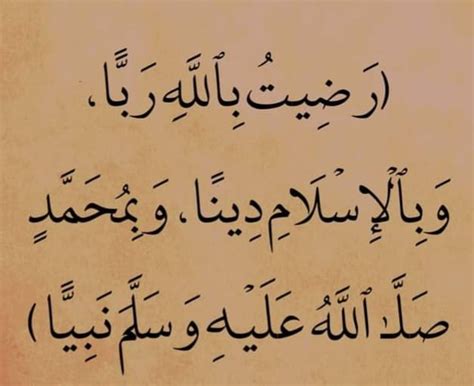 (رَضِيتُ بِٱللَّهِ رَبًّا،
وَبِٱلْإِسْلَامِ دِينًا، وَبِمُحَمَّدٍ
صَلَّىٰ ٱللَّهُ عَلَيْهِ وَسَلَّمَ نَبِيًّا)